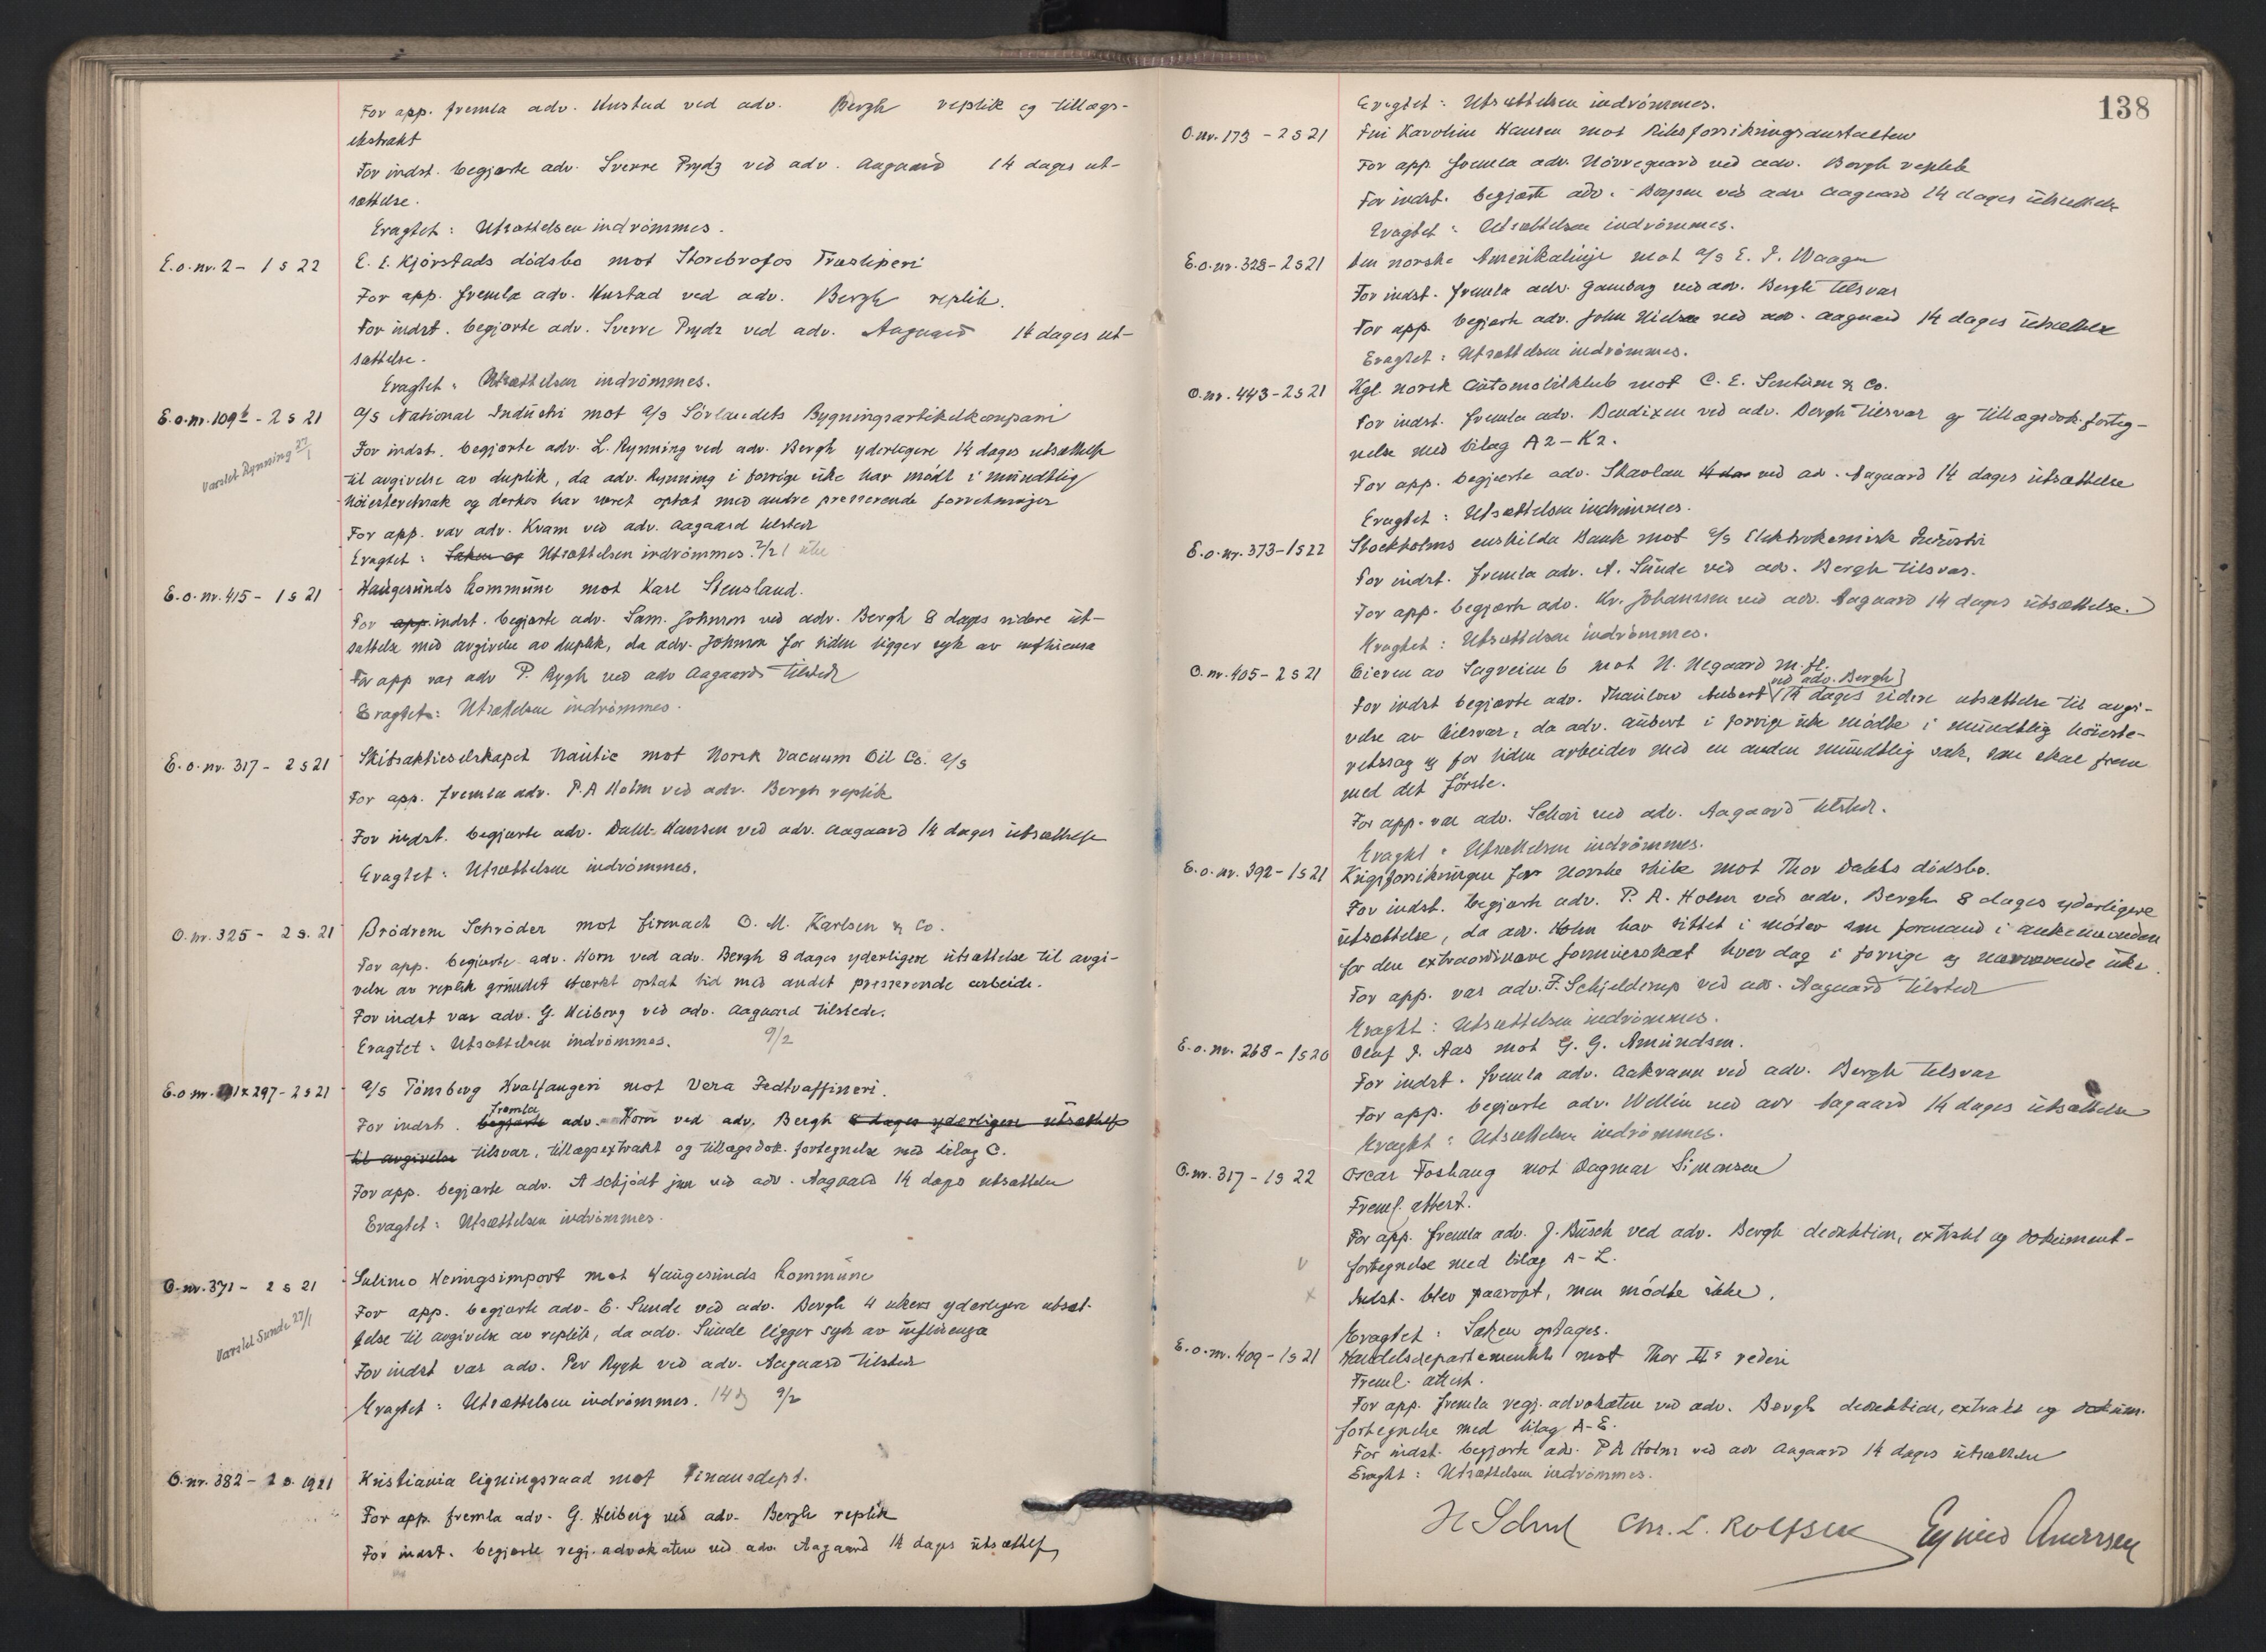 For app. fremla adv. Kustad ved adv. Bergh replik og tillægs-
ekstrakt
For indst. begjærte adv. Sverre Prydz ved adv. Aagaard 14 dages ut-
sættelse.
Eragtet: Utsættelsen indrömmes.
E.o.nr. 2 - 1 s 22 E. E. Kjörstads dödsbo mot Storebrofos Træsliperi
For app. fremla adv. Kustad ved adv. Bergh replik.
For indst. begjærte adv. Sverre Prydz ved adv. Aagaard 14 dages ut-
sættelse.
Eragtet: Utsættelsen indrömmes.
E.o.nr. 109b - 2 s 21 A/S National Industri mot A/S Sörlandets Bygningsartikelkompani
Varslet Rynning 27/1
For indst. begjærte adv. L. Rynning ved adv. Bergh yderligere 14 dages utsættelse
til avgivelse av duplik, da adv. Rynning i forrige uke har mödt i mundtlig
höiesteretssak og derhos har været optat med andre presserende forretninger
For app. var adv. Kvam ved adv. Aagaard tilstede
Eragtet: Saken op Utsættelsen indrömmes. 2/2 1 uke
E.o.nr. 415 - 1 s 21 Haugesunds kommune mot Karl Stensland.
For app. indst. begjærte adv. Sam. Johnson ved adv. Bergh 8 dages videre ut-
sættelse med avgivelse av duplik, da adv. Johnson for tiden ligger syk av influensa
For app var adv P. Rygh ved adv Aagaard tilstede
Eragtet: Utsættelsen indrömmes.
E.o.nr. 317 - 2 s 21 Skibsaktieselskapet Nautic mot Norsk Vacuum Oil Co. A/S
For app. fremla adv. P.A Holm ved adv. Bergh replik
For indst. begjærte adv. Dahl-Hansen ved adv. Aagaard 14 dages utsættelse
Eragtet: Utsættelsen indrömmes.
O.nr. 325 - 2 s. 21 Brödrene Schröder mot firmaet O. M. Karlsen & Co.
For app. begjærte adv. Horn ved adv. Bergh 8 dages yderligere utsættelse til avgi-
velse av replik grundet stærkt optat tid med andet presserende arbeide.
For indst var adv. G. Heiberg ved adv. Aagaard tilstede.
Eragtet: Utsættelsen indrömmes. 9/2
E.o nr. 297 - 2 s 21 A/S Tönsberg Hvalfangeri mot Vera Fedtraffineri.
fremla
For indst. begjærte adv. Horn ved adv. Bergh 8 dages yderligere utsættelse
til avgivelse tilsvar, tillægsextrakt og tillægsdok. fortegnelse med bilag C.
For app. begjærte adv. A Schjödt jun ved adv. Aagaard 14 dages utsættelse
Eragtet: Utsættelsen indrömmes.
O.nr. 371 - 2 s 21 Sulimo Heringsimport mot Haugesunds kommune
Varslet Sunde 27/1
For app. begjærte adv. E. Sunde ved adv. Bergh 4 ukers yderligere utsæt-
telse til avgivelse av replik, da adv. Sunde ligger syk av influenza
For indst var adv. Per Rygh ved adv. Aagaard tilstede
Eragtet: Utsættelsen indrömmes. 14 d 9/2
O.nr. 382 - 2 s. 1921 Kristiania ligningsraad mot Finansdept.
For app. fremla adv. G. Heiberg ved adv. Bergh replik
For indst. begjærte regj.advokaten ved adv. Aagaard 14 dages utsættelse
138
Eragtet: Utsættelsen indrömmes.
O.nr. 173 - 2 s 21 Fru Karoline Hansen mot Riksforsikringsanstalten
For app. fremla adv. Nörregaard ved adv. Bergh replik
For indst. begjærte adv. ved adv Aagaard 14 dages utsættelse
Eragtet: Utsættelsen indrömmes.
E.o.nr. 328 - 2 s 21 Den norske Amerikalinje mot A/S E. I. Waagen
For indst. fremla adv. Gamborg ved adv. Bergh tilsvar
For app. begjærte adv. John Nielsen ved adv. Aagaard 14 dages utsættelse
Eragtet: Utsættelsen indrömmes.
O.nr. 443 - 2 s 21 Kgl. norsk automobilklub mot C. E. Sontum & Co.
For indst. fremla adv. Bendixen ved adv. Bergh tilsvar og tillægsdok. forteg-
nelse med bilag A2 - K2.
For app. begjærte adv. Skavlan 14 da ved adv. Aagaard 14 dages utsættelse
Eragtet: Utsættelsen indrömmes.
E.o.nr. 373 - 1 s 22 Stockholms enskilda Bank mot A/S Elektrokemisk Industri
For indst. fremla adv. A. Sunde ved adv. Bergh tilsvar.
For app. begjærte adv. Kr. Johanssen ved adv. Aagaard 14 dages utsættelse.
Eragtet: Utsættelsen indrömmes.
O.nr. 405 - 2 s 21 Eieren av Sagveien 6 mot N. Negaard m. fl.
ved adv. Bergh
For indst begjærte adv. Thaulow Aubert 14 dages videre utsættelse til avgi-
velse av tilsvar, da adv. Aubert i forrige uke mödte i mundtlig höieste-
retssag og for tiden arbeider med en anden mundtlig sak, som skal frem
med det förste.
For app. var adv. ved adv. Aagaard tilstede.
Eragtet: Utsættelsen indrömmes.
E.o.nr. 392 - 1 s 21 Krigsforsikringen for norske skibe mot Thor Dahls dödsbo.
For indst. begjærte adv. P. A. Holm ved adv. Bergh 8 dages yderligere
utsættelse, da adv. Holm har sittet i möter som formand i ankenævnden
for den extraordinære formuesskat hver dag i forrige og nærværende uke.
For app. var adv. F. Schjelderup ved adv. Aagaard tilstede
Eragtet: Utsættelsen indrömmes.
E.o.nr. 268 - 1 s 20 Olaf I. Aas mot G. G. Amundsen.
For indst. fremla adv. Aakrann ved adv. Bergh tilsvar
For app. begjærte adv. Wellén ved adv Aagaard 14 dages utsættelse
Eragtet: Utsættelsen indrömmes.
O.nr. 317 - 1 s 22 Oscar Foshaug mot Dagmar Simonsen
Freml. attest.
For app. fremla adv. J. Busch ved adv. Bergh deduktion, extrakt og dokument-
v fortegnelse med bilag A - L.
x Indst. blev paaropt, men mödte ikke.
Eragtet: Saken optages.
E.o.nr. 409 - 1 s 21 Handelsdepartementet mot Thor IIs rederi
Freml. attest.
For app. fremla regj.advokaten ved adv. Bergh deduktion, extrakt og dokum.
fortegnelse med bilag A-E.
For indst. begjærte adv. P A Holm ved adv Aagaard 14 dages utsættelse
Eragtet: Utsættelsen indrömmes.
Chr. L. Rolfsen